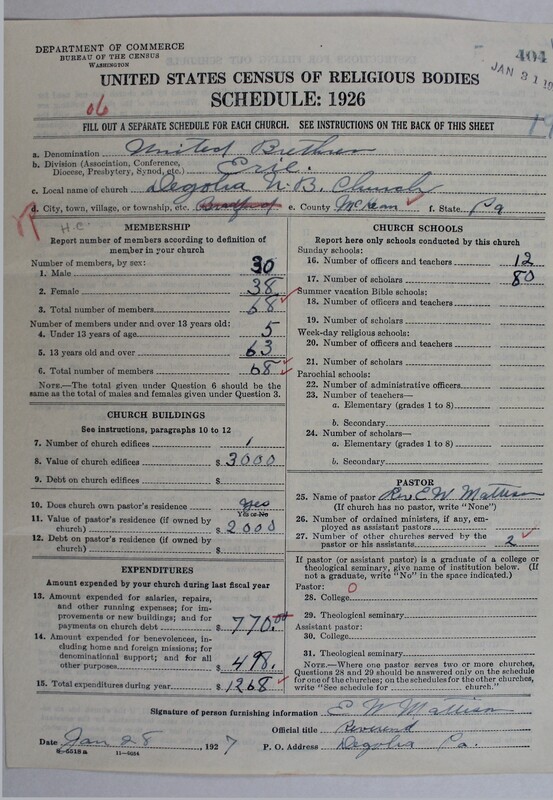 DEPARTMENT OF COMMERCE
BUREAU OF THE CENSUS
WASHINGTON
404
JAN 31 19
UNITED STATES CENSUS OF RELIGIOUS BODIES
SCHEDULE: 1926
06
FILL OUT A SEPARATE SCHEDULE FOR EACH CHURCH. SEE INSTRUCTIONS ON THE BACK OF THIS SHEET
a. Denomination United Brethren
b. Division (Association, Conference, Diocese, Presbytery, Synod, etc.) Erie.
c. Local name of church Degolia U. B. Church
d. City, town, village, or township, etc. Bradford e. County McKean f. State Pa
H.C.
MEMBERSHIP
Report number of members according to definition of member in your church
Number of members, by sex:
1. Male 30
2. Female 38
3. Total number of members 68
Number of members under and over 13 years old:
4. Under 13 years of age 5
5. 13 years old and over 63
6. Total number of members 68
NOTE.—The total given under Question 6 should be the same as the total of males and females given under Question 3.
CHURCH BUILDINGS
See instructions, paragraphs 10 to 12
7. Number of church edifices 1
8. Value of church edifices $ 3000
9. Debt on church edifices $
10. Does church own pastor's residence yes
Yes or No
11. Value of pastor's residence (if owned by church) $ 2000
12. Debt on pastor's residence (if owned by church) $
EXPENDITURES
Amount expended by your church during last fiscal year
13. Amount expended for salaries, repairs, and other running expenses; for improvements or new buildings; and for payments on church debt $ 770.00
14. Amount expended for benevolences, including home and foreign missions; for denominational support; and for all other purposes $ 498.
15. Total expenditures during year $ 1268
CHURCH SCHOOLS
Report here only schools conducted by this church
Sunday schools:
16. Number of officers and teachers 12
17. Number of scholars 80
Summer vacation Bible schools:
18. Number of officers and teachers
19. Number of scholars
Week-day religious schools:
20. Number of officers and teachers
21. Number of scholars
Parochial schools:
22. Number of administrative officers
23. Number of teachers—
a. Elementary (grades 1 to 8)
b. Secondary
24. Number of scholars—
a. Elementary (grades 1 to 8)
b. Secondary
PASTOR
25. Name of pastor Rev E W Mattison
(If church has no pastor, write "None")
26. Number of ordained ministers, if any, employed as assistant pastors
27. Number of other churches served by the pastor or his assistants 2
If pastor (or assistant pastor) is a graduate of a college or theological seminary, give name of institution below. (If not a graduate, write "No" in the space indicated.)
Pastor: 0
28. College
29. Theological seminary
Assistant pastor:
30. College
31. Theological seminary
NOTE.—Where one pastor serves two or more churches, Questions 28 and 29 should be answered only on the schedule for one of the churches; on the schedules for the other churches, write "See schedule for church."
Signature of person furnishing information E W Mattison
Official title Reverend
Date Jan 28, 1927 P. O. Address Degolia Pa.
8-5518a 11-9034